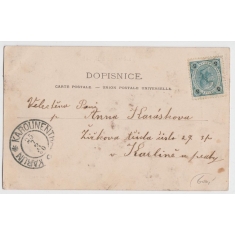 DOPISNICE.
CARTE POSTALE – UNION POSTALE UNIVERSELLE.
Velectěná Paní
Anna Karáskova
Žižkova třída číslo 27
v Karlíně u Prahy
KAROLINENTHAL
KARLÍN